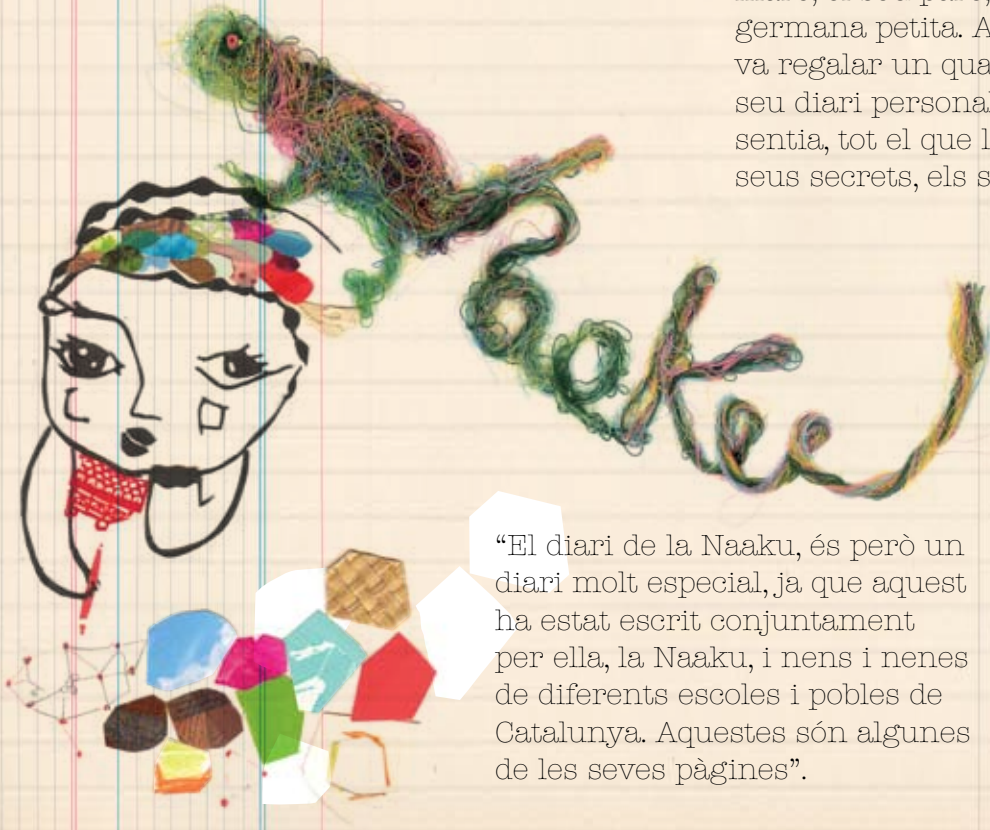 germana petita. A
va regalar un qua
seu diari personal
sentia, tot el que l
seus secrets, els s
“El diari de la Naaku, és però un
diari molt especial, ja que aquest
ha estat escrit conjuntament
per ella, la Naaku, i nens i nenes
de diferents escoles i pobles de
Catalunya. Aquestes són algunes
de les seves pàgines”.